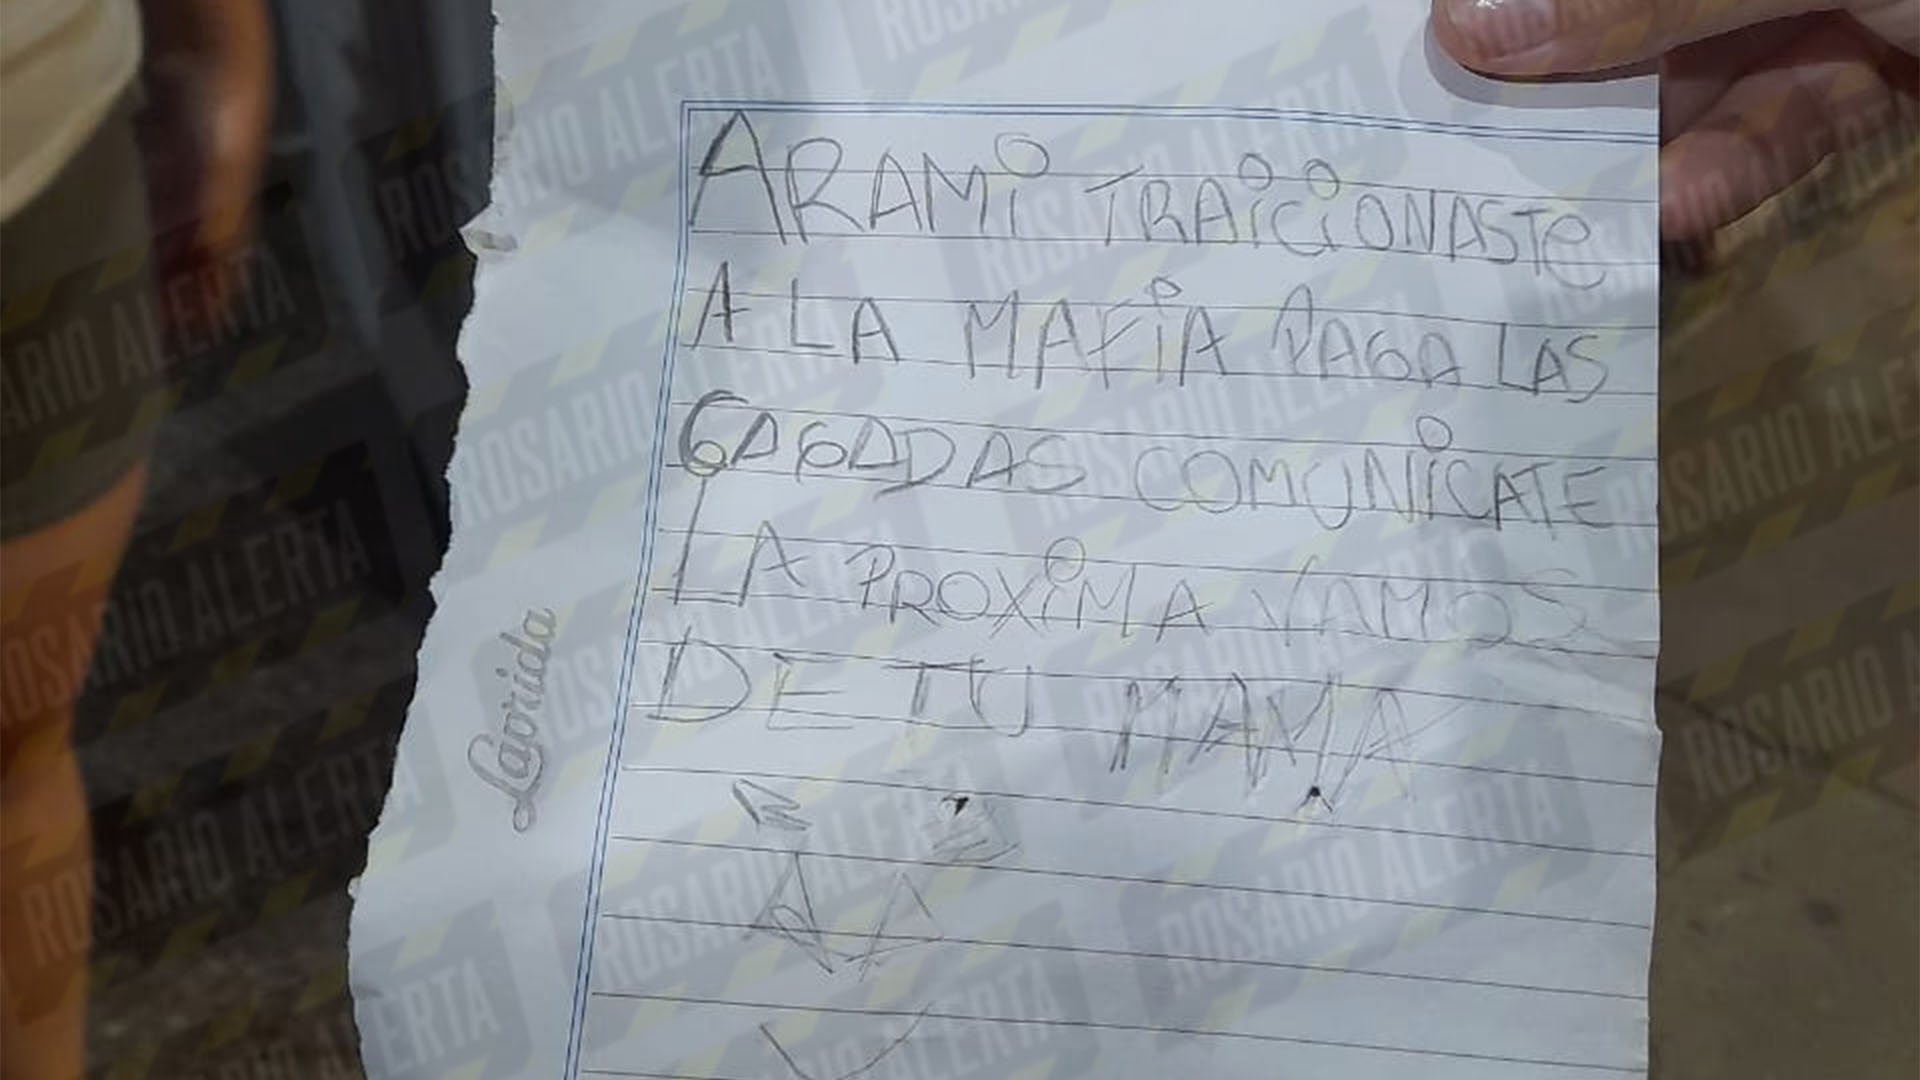 ARAMi TRAiCiONASTe
A LA MAFiA PAGA LAS
GAGADAS COMUNiCATE
LA PROXiMA VAMOS
DE TU MAMA
Laprida
ROSARIO ALERTA